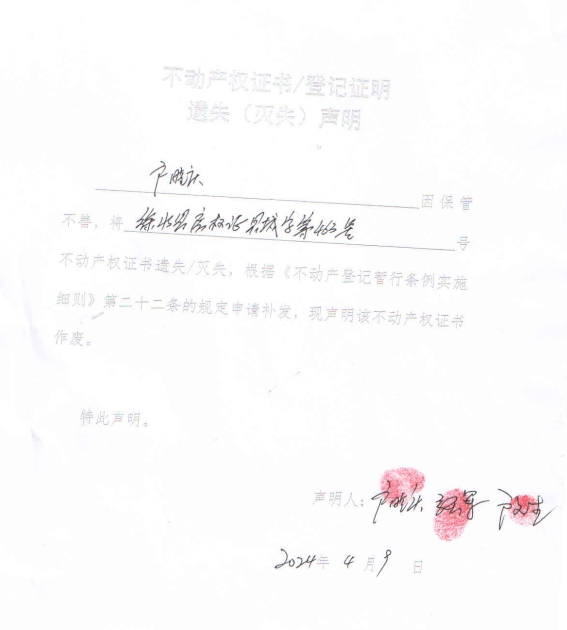 不动产权证书/登记证明
遗失（灭失）声明
卢晓庆 因保管
不善，将 徐水县房权证县城字第463号 号
不动产权证书遗失/灭失，根据《不动产登记暂行条例实施
细则》第二十二条的规定申请补发，现声明该不动产权证书
作废。
特此声明。
声明人：卢晓庆
2024年 4月9日